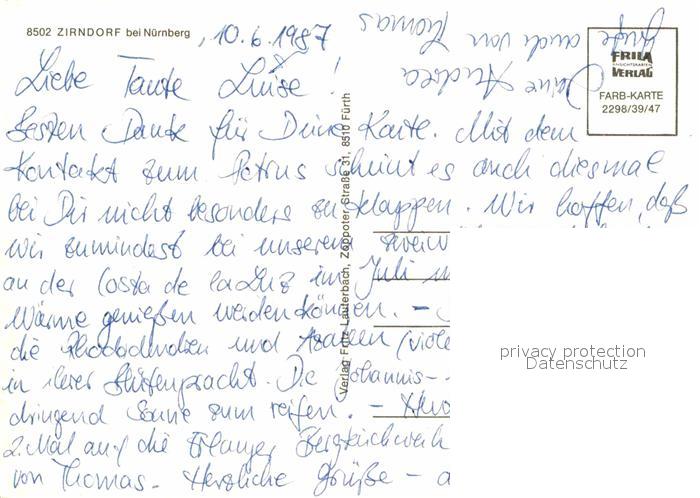 8502 ZIRNDORF bei Nürnberg
, 10.6.1987
Liebe Tante Luise!
besten Dank für Deine Karte. Mit dem
Kontakt zum Petrus scheint es auch diesmal
bei Dir nicht besonders zu klappen. Wir hoffen, daß
wir zumindest bei unserem
an der Costa de la Luz im Juli
Wärme genießen werden können. –
die Rhododendren und Azaleen (viele
in ihrer Blütenpracht. Die Johannis-
dringend Sonne zum reifen. –
2. Mal auf die Erlanger Bergkirchweih
von Thomas. Herzliche Grüße –
Deine Andrea
Grüße auch von Thomas
FRILA
ANSICHTSKARTEN
VERLAG
FARB-KARTE
2298/39/47
Verlag Fritz Lauterbach, Zoppoter Straße 31, 8510 Fürth
privacy protection
Datenschutz